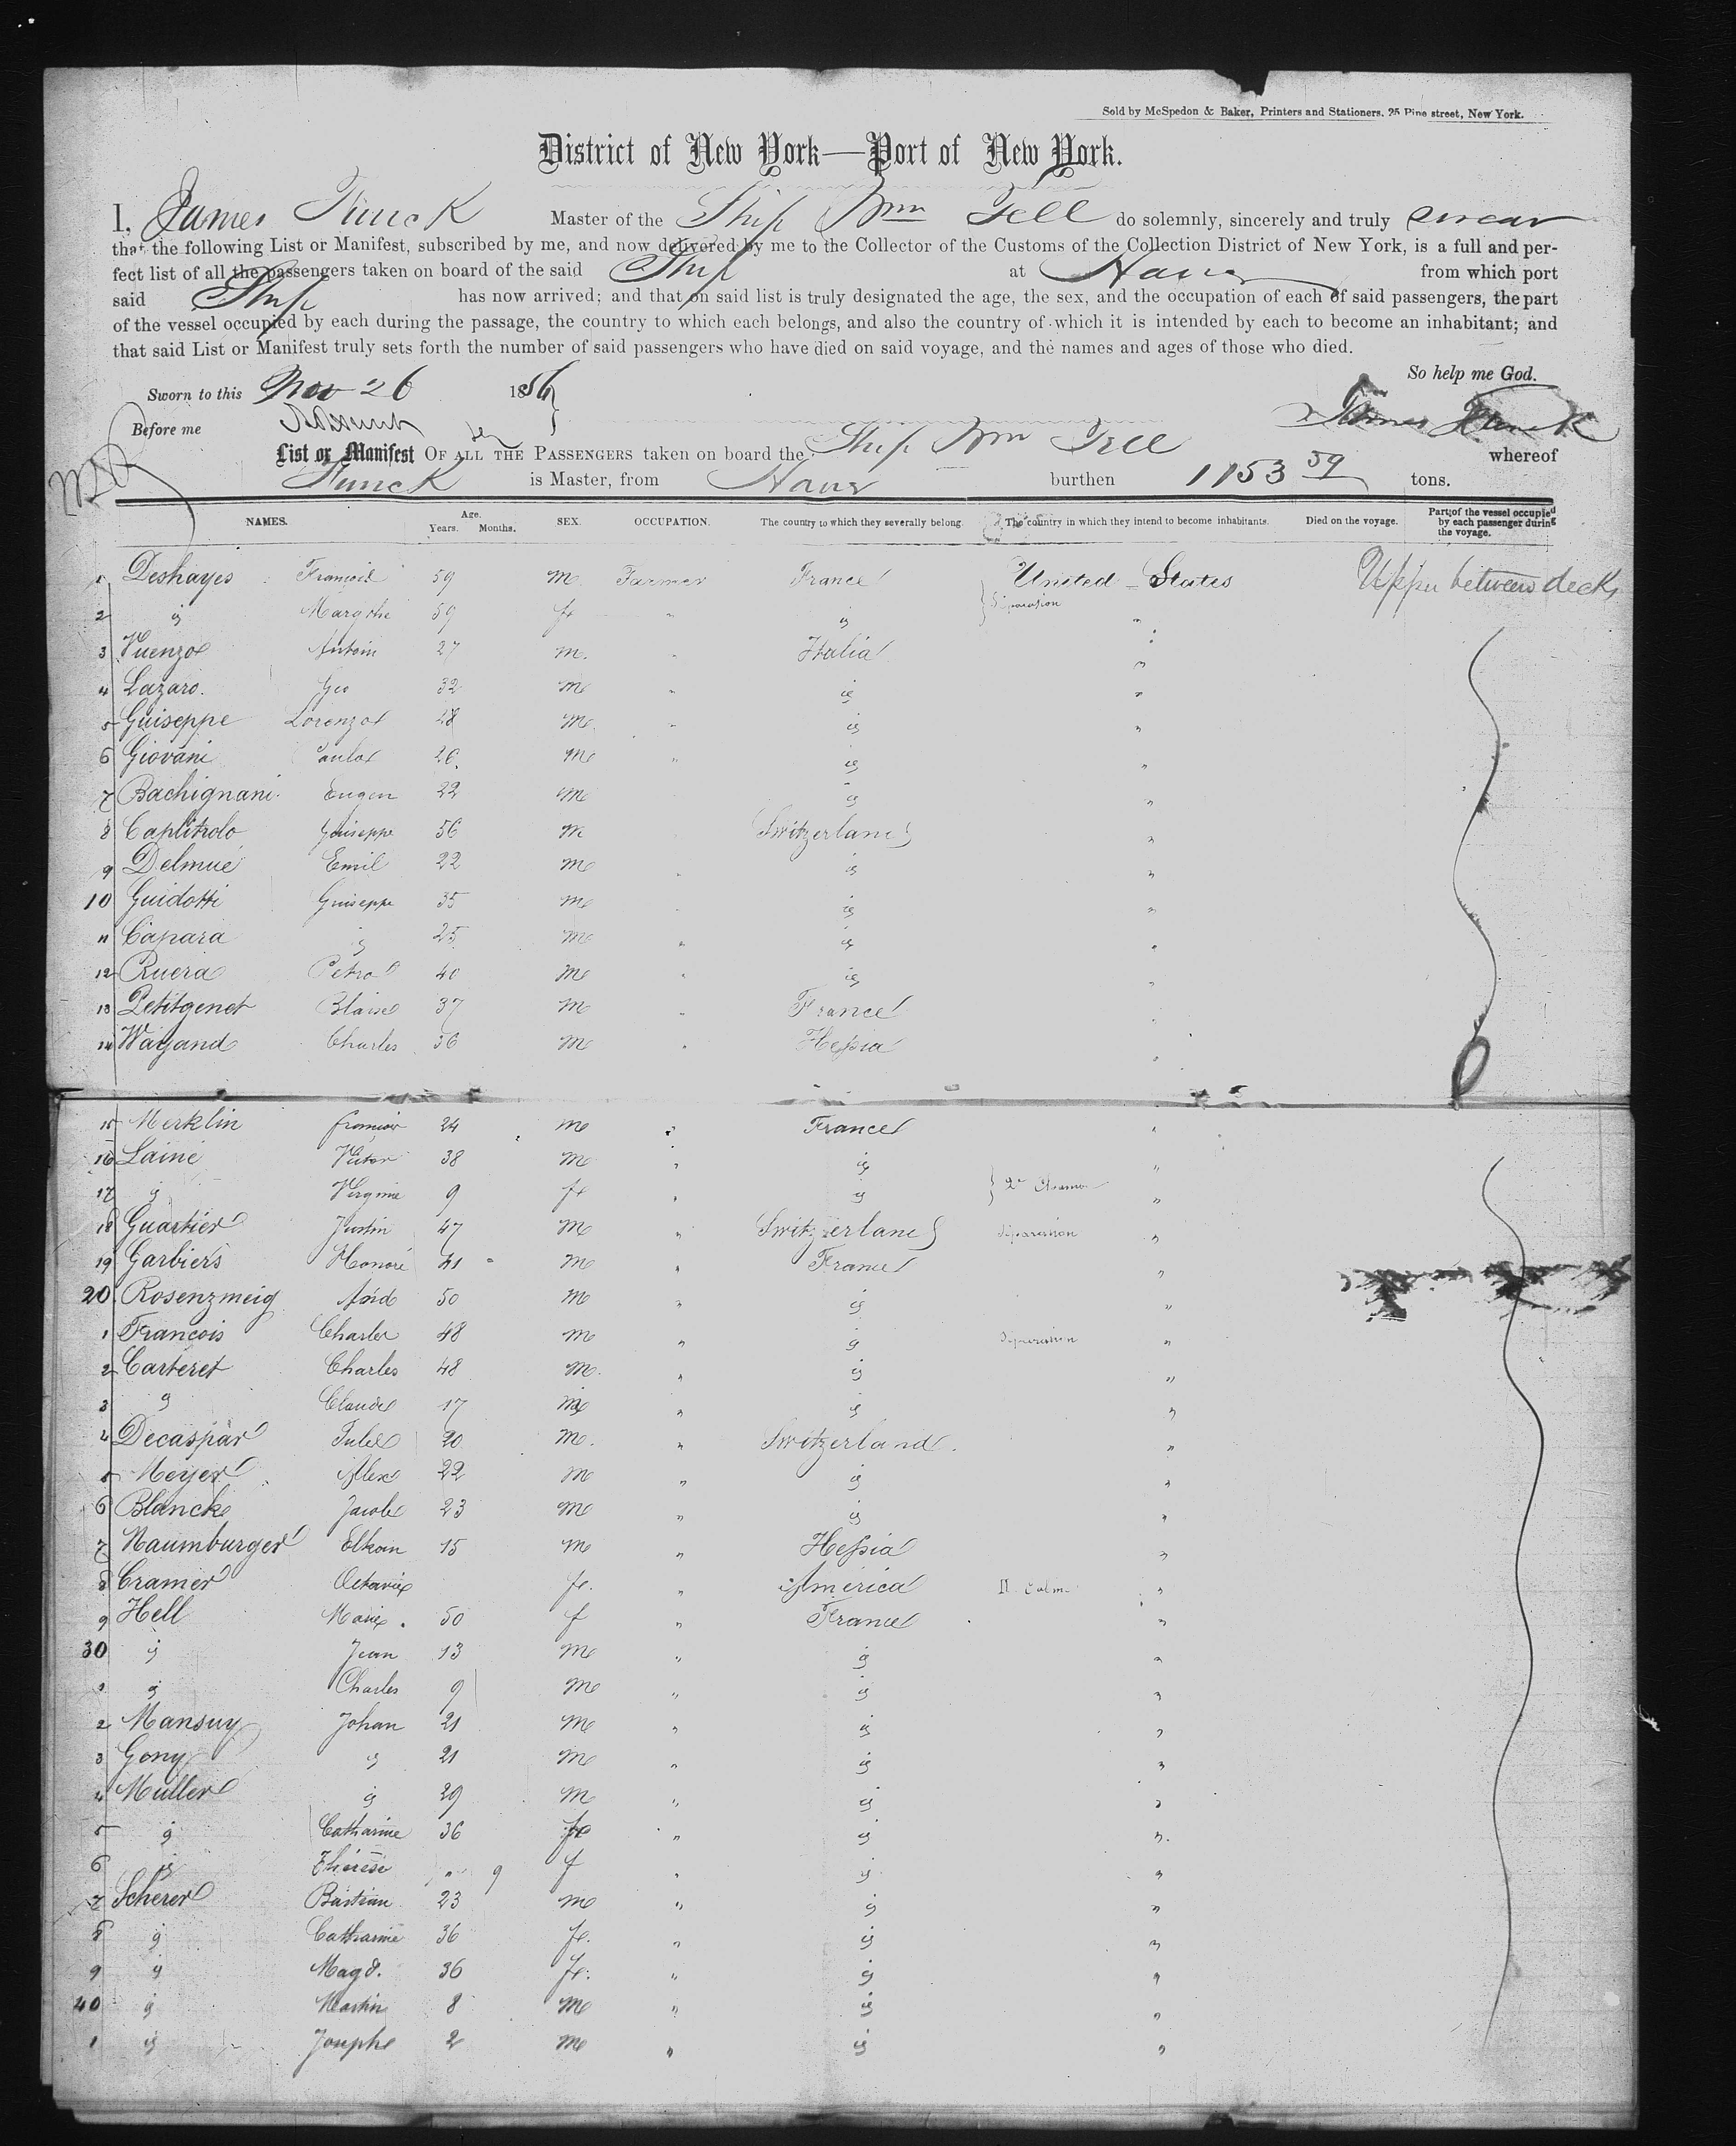 Sold by McSpedon & Baker, Printers and Stationers, 25 Pine street, New York.
District of New York—Port of New York.
I, James Funck Master of the Ship Wm Tell do solemnly, sincerely and truly swear
that the following List or Manifest, subscribed by me, and now delivered by me to the Collector of the Customs of the Collection District of New York, is a full and per-
fect list of all the passengers taken on board of the said Ship at Havre from which port
said Ship has now arrived; and that on said list is truly designated the age, the sex, and the occupation of each of said passengers, the part
of the vessel occupied by each during the passage, the country to which each belongs, and also the country of which it is intended by each to become an inhabitant; and
that said List or Manifest truly sets forth the number of said passengers who have died on said voyage, and the names and ages of those who died.
So help me God.
Sworn to this Nov 26 1856
Before me
James Funck
List or Manifest OF ALL THE PASSENGERS taken on board the Ship Wm Tell whereof
Funck is Master, from Havre burthen 1153 59 tons.
NAMES. Age. Years. Months. SEX. OCCUPATION. The country to which they severally belong. The country in which they intend to become inhabitants. Died on the voyage. Part of the vessel occupied by each passenger during the voyage.
1 Deshayes François 59 m Farmer France United States Upper between decks
2 " Margthe 59 fe " " "
3 Vuenzo Antoin 27 m. " Italia "
4 Lazaro. Geo 32 m " " "
5 Guiseppe Lorenzo 28 m " " "
6 Giovani Paulo 26 m " " "
7 Bachignani Eugen 22 m " "
8 Caplitrolo Guiseppe 56 m Switzerland "
9 Delmué Emil 22 m " " "
10 Guidotti Guiseppe 35 m " " "
11 Capara " 25 m " " "
12 Ruera Petro 40 m " " "
13 Petitgenet Blaise 37 m " France "
14 Wayand Charles 36 m " Hessia "
15 Merklin 24 m " France "
16 Lainé Victor 38 m " " "
17 " Virginie 9 fe " " "
18 Quartier Justin 47 m " Switzerland Séparation "
19 Garbiers Honoré 41 m " France "
20 Rosenzweig 50 m " " "
1 Francois Charles 48 m " " Séparation "
2 Carteret Charles 48 m. " " "
3 " Claude 17 m " " "
4 Decaspar Jules 20 m. " Switzerland. "
5 Meyer Alex 22 m " " "
6 Blancke Jacob 23 m " " "
7 Naumburger Elkan 15 m " Hessia "
8 Cramer Octavie fe. " America "
9 Hell Marie 50 f " France "
30 " Jean 13 m " " "
1 " Charles 9 m " " "
2 Mansuy Johan 21 m " " "
3 Gony " 21 m " " "
4 Müller " 29 m " " "
5 " Catharine 36 fe " " "
6 " Thérèse " 9 f " " "
7 Scherer Bastian 23 m " " "
8 " Catharine 36 fe. " " "
9 " Magd. 36 fe. " " "
40 " Martin 8 m " " "
1 " Josephe 2 m " " "